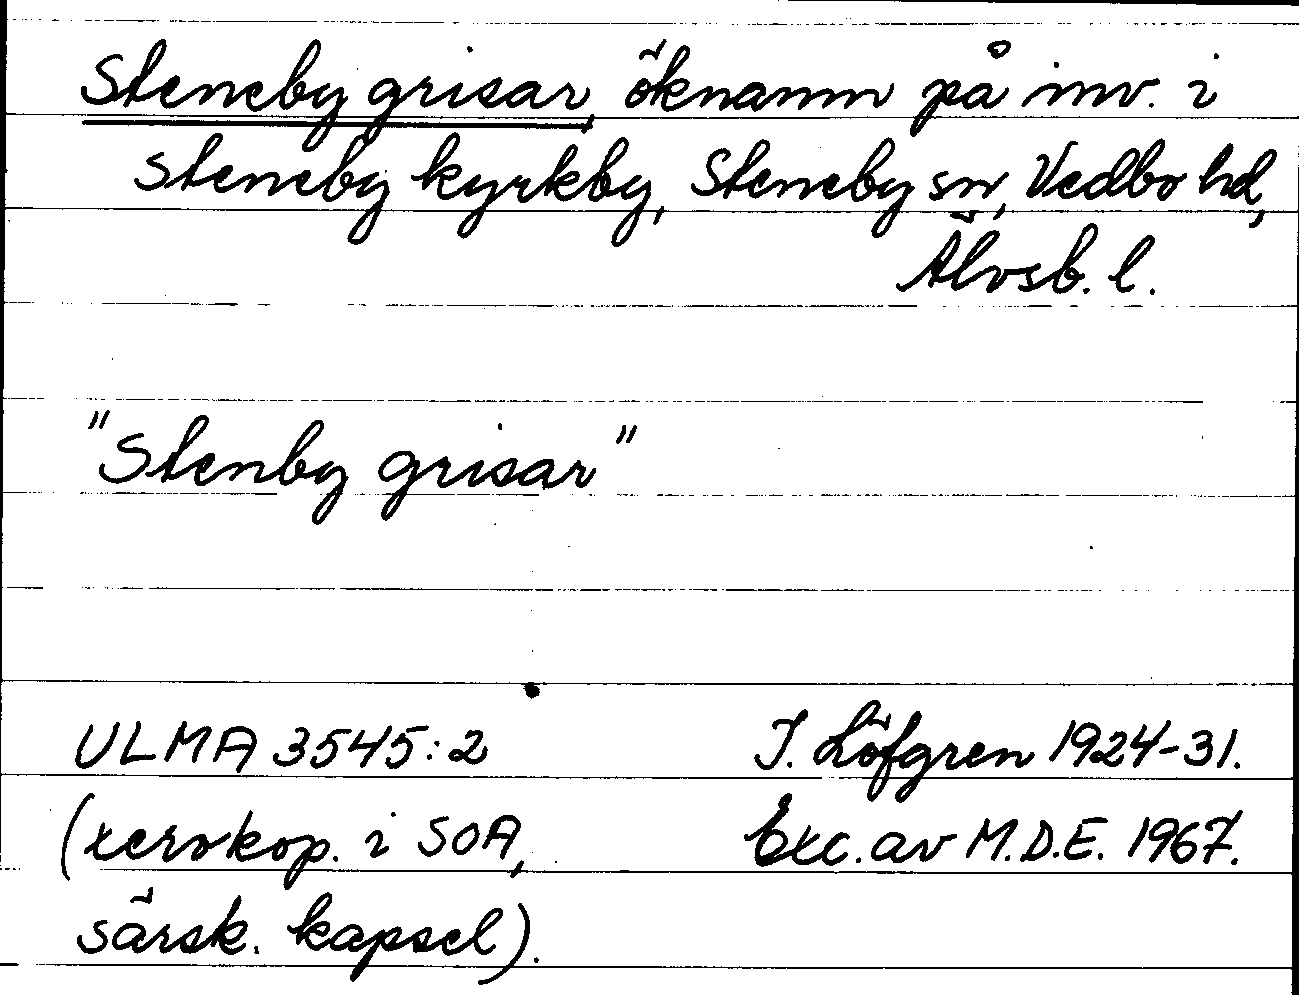 Steneby grisar, öknamn på inv. i
Steneby kyrkby, Steneby sn, Vedbo hd,
Älvsb. l.
"Stenby grisar"
ULMA 3545:2 J. Löfgren 1924-31.
(xerokop. i SOA, Exc. av M.D.E. 1967.
särsk. kapsel).